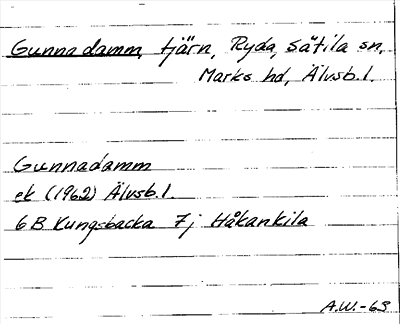 Gunnadamm, tjärn, Ryda, Sätila sn,
Marks hd, Älvsb.l.
Gunnadamm
ek (1962) Älvsb.l.
6B Kungsbacka 7j Håkankila
A.W.-63